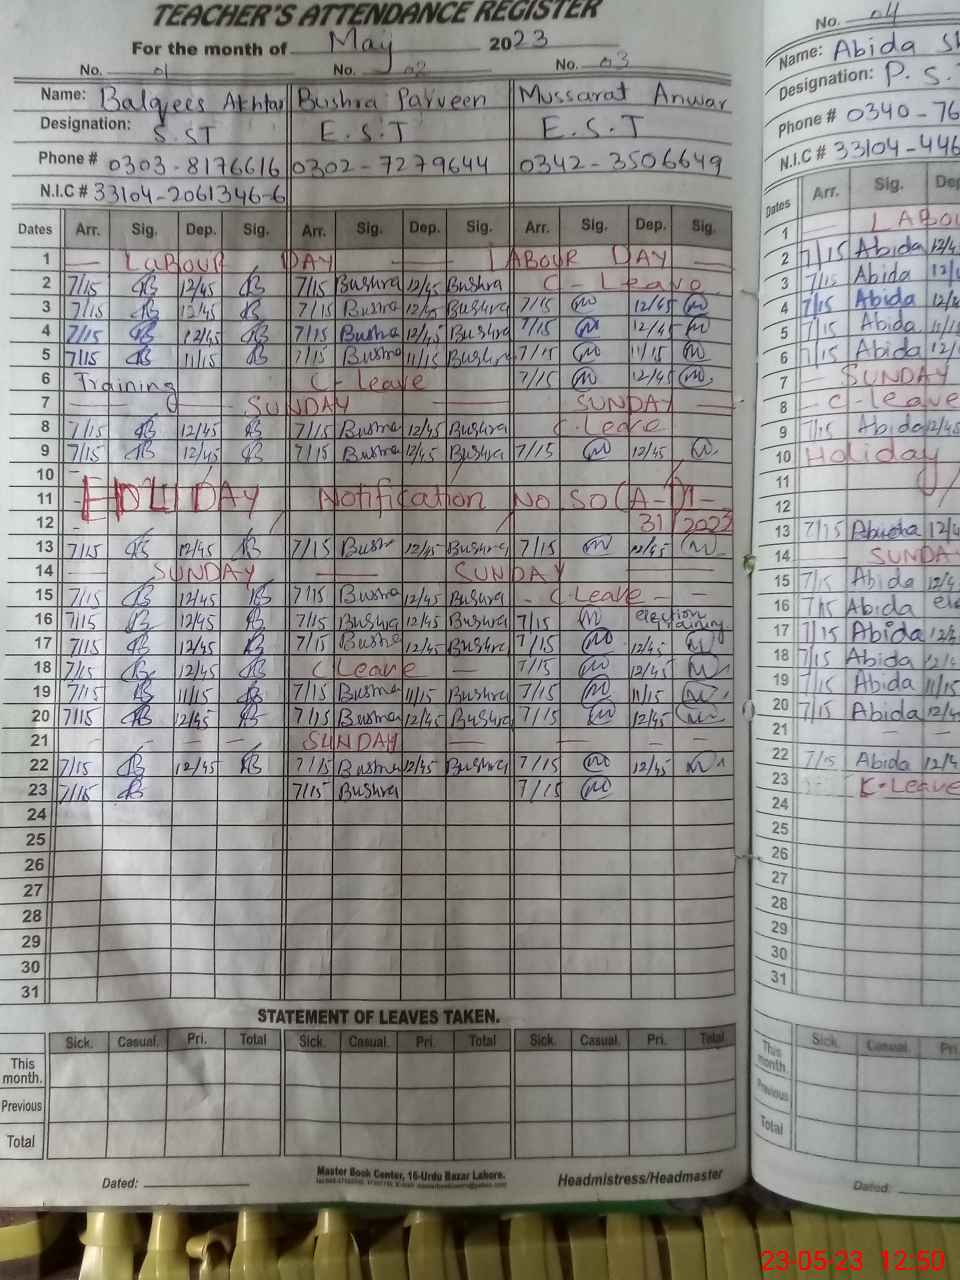 TEACHER'S ATTENDANCE REGISTER
For the month of May 2023
No. 01 No. 02 No. 03
Name: Balqees Akhtar Bushra Parveen Mussarat Anwar
Designation: S.ST E.S.T E.S.T
Phone # 0303-8176616 0302-7279644 0342-3506649
N.I.C # 33104-2061346-6
Dates Arr. Sig. Dep. Sig. Arr. Sig. Dep. Sig. Arr. Sig. Dep. Sig.
1 LABOUR DAY LABOUR DAY
2 7/15 12/45 7/15 Bushra 12/45 Bushra C-Leave
3 7/15 12/45 7/15 Bushra 12/45 Bushra 7/15 12/45
4 7/15 12/45 7/15 Bushra 12/45 Bushra 7/15 12/45
5 7/15 11/15 7/15 Bushra 11/15 Bushra 7/15 11/15
6 Training C-Leave 7/15 12/45
7 SUNDAY SUNDAY
8 7/15 12/45 7/15 Bushra 12/45 Bushra C-Leave
9 7/15 12/45 7/15 Bushra 12/45 Bushra 7/15 12/45
10
11 HOLIDAY Notification No SO(A-1)1-
12 31/2023
13 7/15 12/45 7/15 Bushra 12/45 Bushra 7/15 12/45
14 SUNDAY SUNDAY
15 7/15 12/45 7/15 Bushra 12/45 Bushra C-Leave
16 7/15 12/45 7/15 Bushra 12/45 Bushra 7/15 election training
17 7/15 12/45 7/15 Bushra 12/45 Bushra 7/15 12/45
18 7/15 12/45 C Leave 7/15 12/45
19 7/15 11/15 7/15 Bushra 11/15 Bushra 7/15 11/15
20 7/15 12/45 7/15 Bushra 12/45 Bushra 7/15 12/45
21 SUNDAY
22 7/15 12/45 7/15 Bushra 12/45 Bushra 7/15 12/45
23 7/15 7/15 Bushra 7/15
24
25
26
27
28
29
30
31
STATEMENT OF LEAVES TAKEN.
Sick. Casual. Pri. Total Sick. Casual. Pri. Total Sick. Casual. Pri. Total
This month.
Previous
Total
Dated:
Master Book Center, 16-Urdu Bazar Lahore.
Headmistress/Headmaster
No. 04
Name: Abida
Designation: P.S.
Phone # 0340-76
N.I.C # 33104-446
Dates Arr. Sig. Dep
1 LABOU
2 7/15 Abida 12/45
3 7/15 Abida
4 7/15 Abida
5 7/15 Abida 11/15
6 7/15 Abida
7 SUNDAY
8 C-leave
9 7/15 Abida 12/45
10 Holiday
11
12
13 7/15 Abida
14 SUNDAY
15 7/15 Abida
16 7/15 Abida
17 7/15 Abida
18 7/15 Abida
19 7/15 Abida 11/15
20 7/15 Abida
21
22 7/15 Abida
23 C-Leave
24
25
26
27
28
29
30
31
Sick. Casual. Pri
This month.
Previous
Total
Dated:
23-05-23 12:50